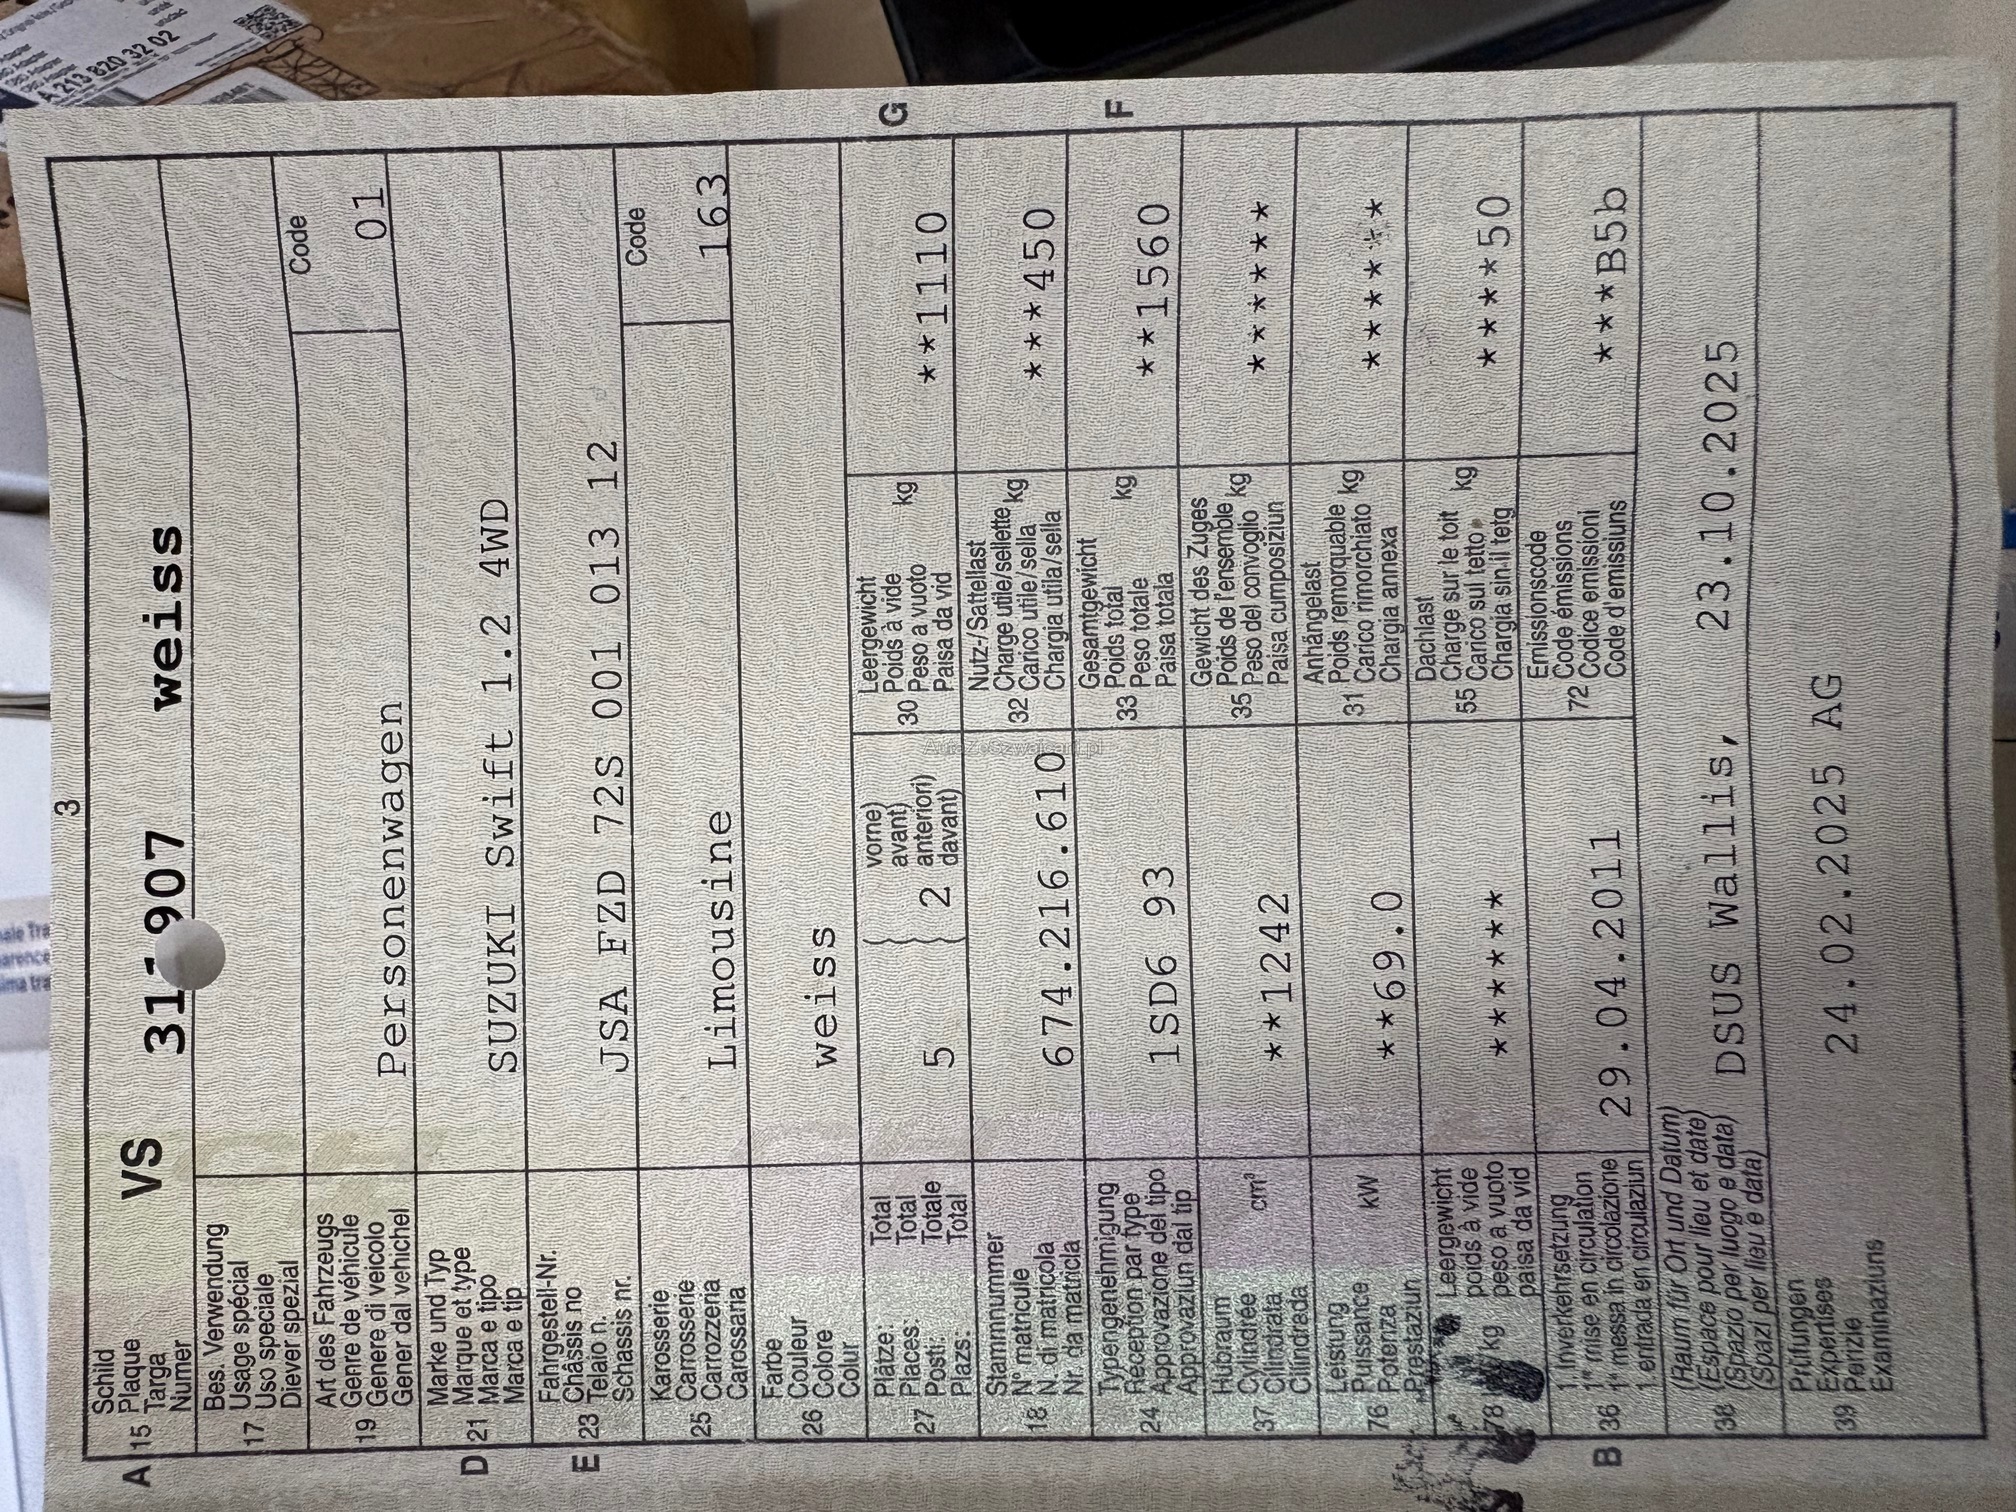 3
A 15 Schild
Plaque
Targa
Numer
VS 31 907 weiss
17 Bes. Verwendung
Usage spécial
Uso speciale
Diever spezial
19 Art des Fahrzeugs
Genre de véhicule
Genere di veicolo
Gener dal vehichel
Personenwagen
Code
01
D 21 Marke und Typ
Marque et type
Marca e tipo
Marca e tip
SUZUKI Swift 1.2 4WD
E 23 Fahrgestell-Nr.
Châssis no
Telaio n.
Schassis nr.
JSA FZD 72S 001 013 12
25 Karosserie
Carrosserie
Carrozzeria
Carossaria
Limousine
Code
163
26 Farbe
Couleur
Colore
Colur
weiss
27 Plätze: Total
Places: Total
Posti: Totale
Plazs: Total
5
vorne)
avant)
anteriori)
davant)
2
30 Leergewicht
Poids à vide
Peso a vuoto
Paisa da vid
kg
**1110
G
18 Stammnummer
N° matricule
N. di matricola
Nr. da matricla
674.216.610
32 Nutz-/Sattellast
Charge utile/sellette
Carico utile/sella
Chargia utila/sella
kg
***450
24 Typengenehmigung
Réception par type
Approvazione del tipo
Approvaziun dal tip
1SD6 93
33 Gesamtgewicht
Poids total
Peso totale
Paisa totala
kg
**1560
F
37 Hubraum
Cylindrée
Cilindrata
Cilindrada
cm³
**1242
35 Gewicht des Zuges
Poids de l'ensemble
Peso del convoglio
Paisa cumposiziun
kg
******
76 Leistung
Puissance
Potenza
Prestaziun
kW
**69.0
31 Anhängelast
Poids remorquable
Carico rimorchiato
Chargia annexa
kg
******
78 kg Leergewicht
poids à vide
peso a vuoto
paisa da vid
******
55 Dachlast
Charge sur le toit
Carico sul tetto
Chargia sin il tetg
kg
****50
B 36 1. Inverkehrsetzung
1re mise en circulation
1a messa in circolazione
1. entrada en circulaziun
29.04.2011
72 Emissionscode
Code émissions
Codice emissioni
Code d'emissiuns
***B5b
38 (Raum für Ort und Datum)
(Espace pour lieu et date)
(Spazio per luogo e data)
(Spazi per lieu e data)
DSUS Wallis, 23.10.2025
39 Prüfungen
Expertises
Perizie
Examinaziuns
24.02.2025 AG
AutaZeSzwajcarii.pl
A 213 820 32 02